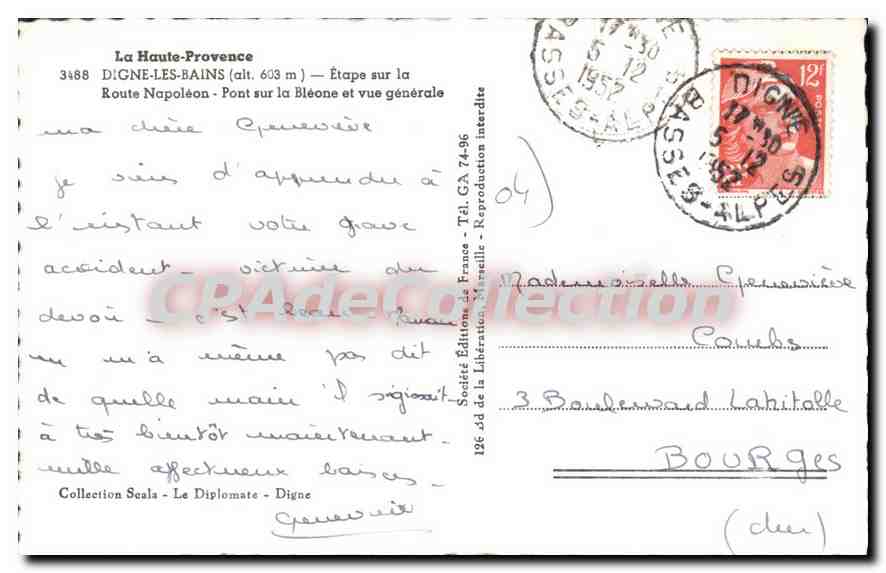 La Haute-Provence
3488 DIGNE-LES-BAINS (alt. 603 m) — Étape sur la
Route Napoléon - Pont sur la Bléone et vue générale
ma chère Geneviève
je viens d'apprendre à
l'instant votre grave
accident - victime du
devoir - c'est beau -
m'a même pas dit
de quelle main il s'agissait -
à très bientôt maintenant -
mille affectueux baisers -
Collection Scala - Le Diplomate - Digne
Société Éditions de France - Tél. GA 74-96
126 Bd de la Libération, Marseille - Reproduction interdite
04)
BASSES-ALPES
17H30
5-12
1952
12F
DIGNE
17H30
5-12
1952
BASSES-ALPES
Mademoiselle Geneviève
Combs
3 Boulevard Lahitolle
BOURGES
(cher)
CPAdeCollection